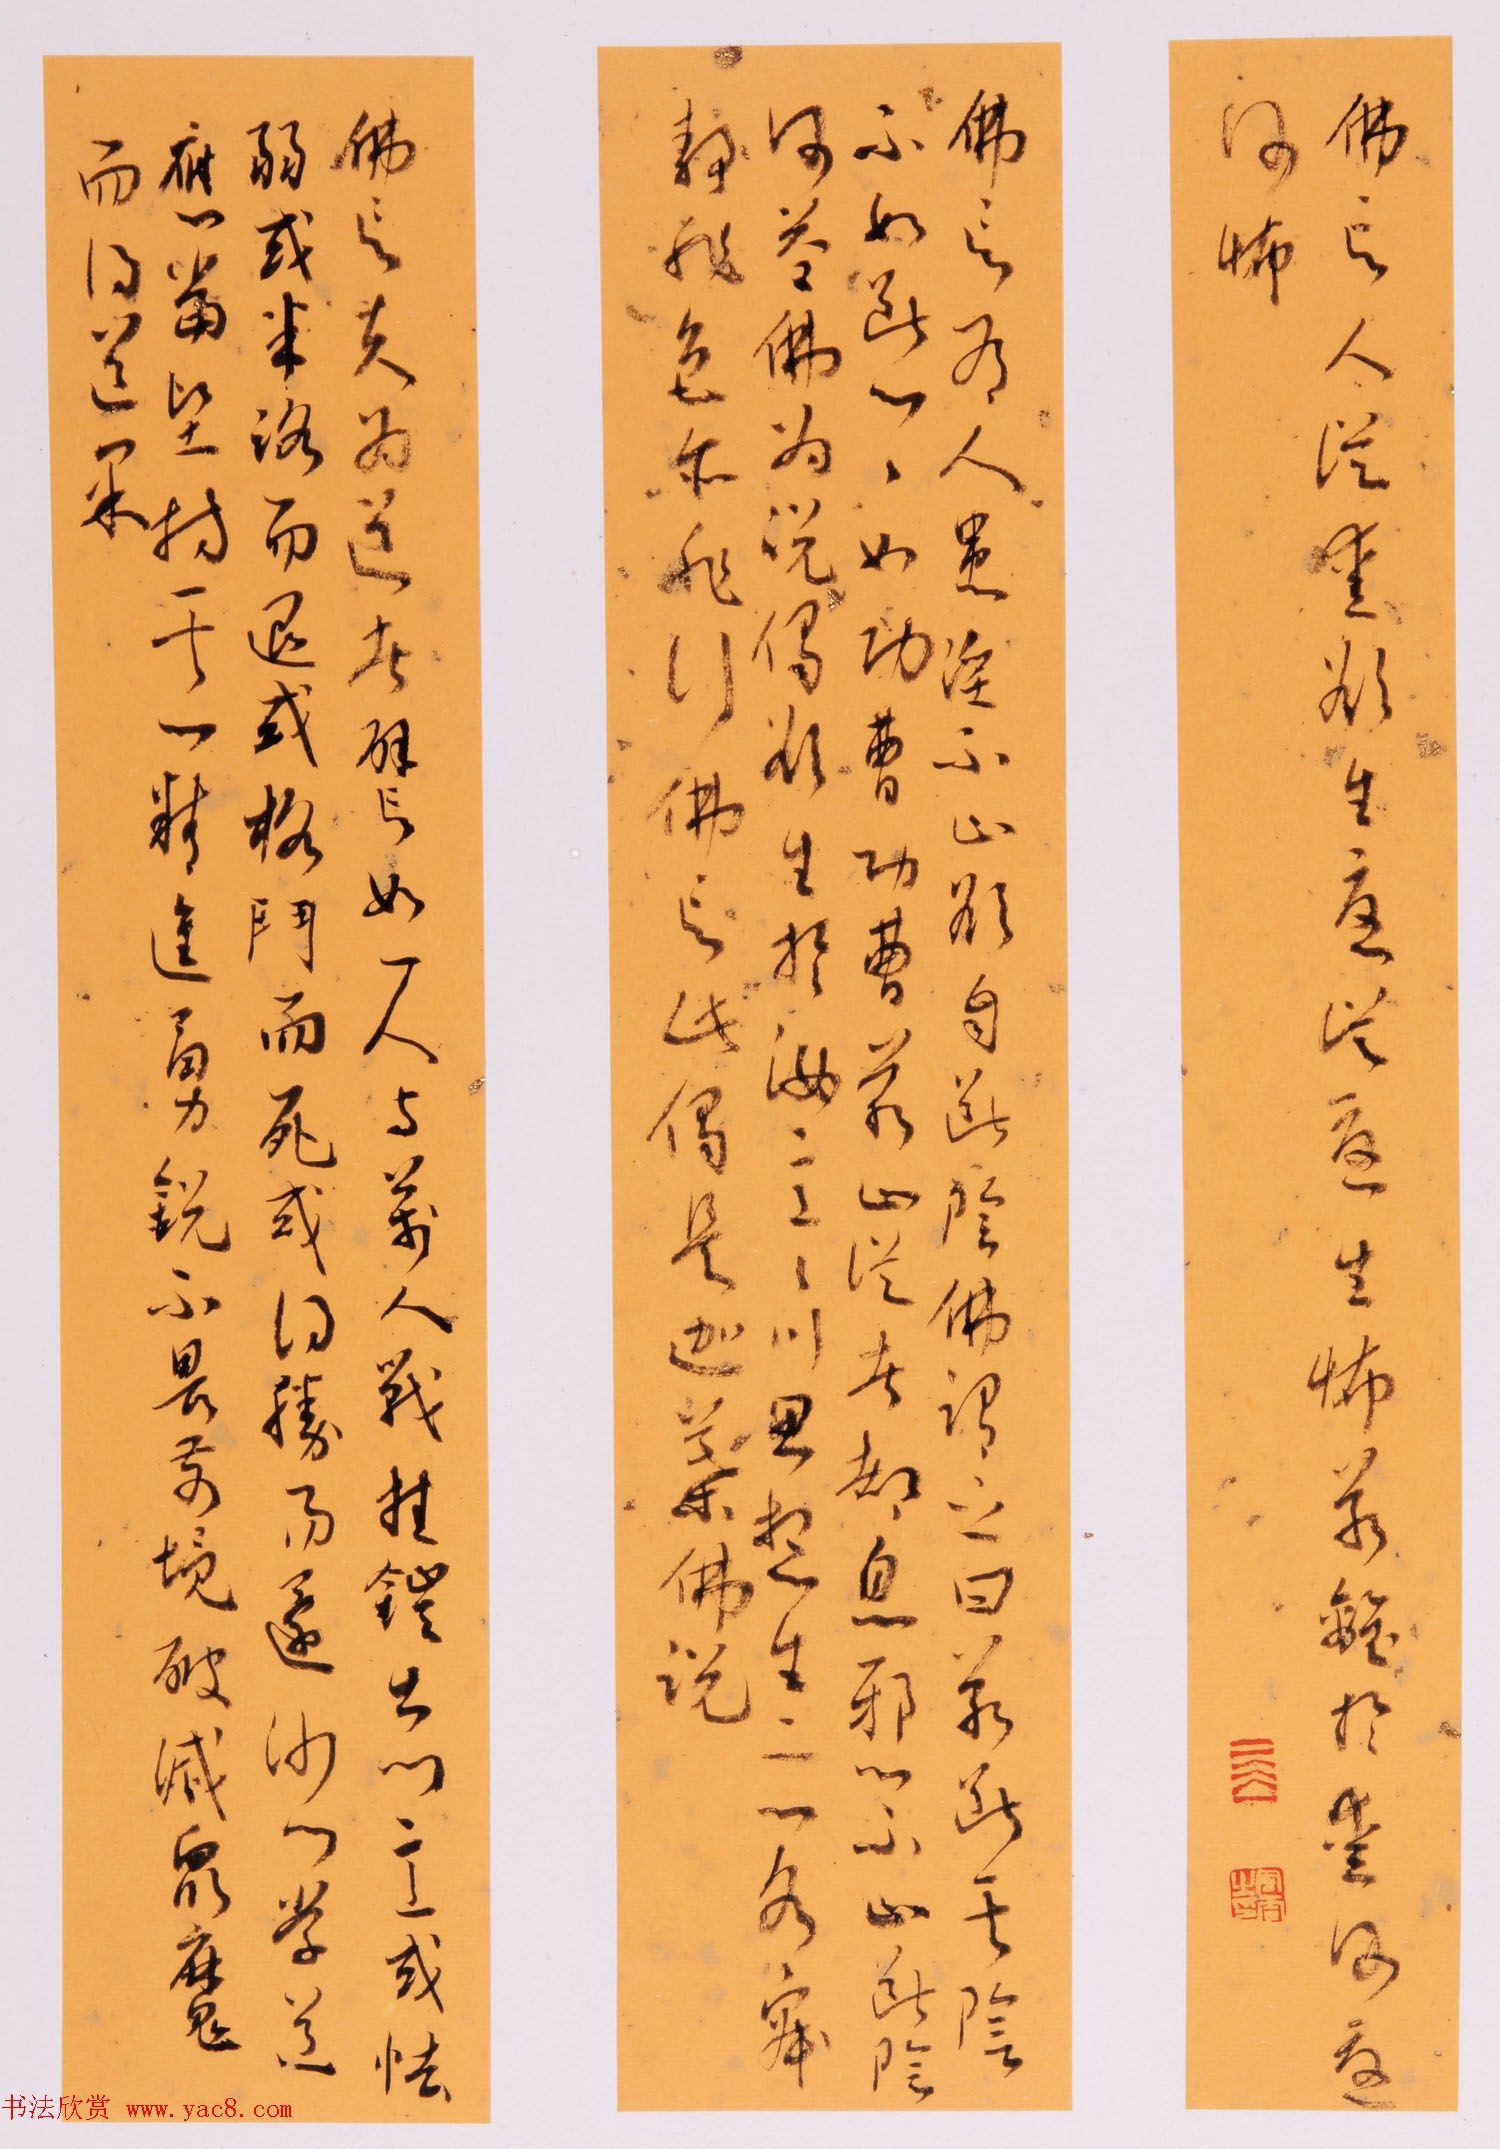 佛言人從愛欲生憂從憂生怖若離於愛何憂
何怖
佛言有人患淫不止欲自斷陰佛謂之曰若斷其陰
不如斷心、如功曹功曹若止從者都息邪心不止斷陰
何益佛為說偈欲生於汝意、以思想生二心各寂
靜非色亦非行佛言此偈是迦葉佛說
佛言夫為道者譬如一人與萬人戰挂鎧出門意或怯
弱或半路而退或格鬥而死或得勝而還沙門學道
應當堅持其心精進勇銳不畏前境破滅眾魔
而得道果
书法欣赏 www.yac8.com